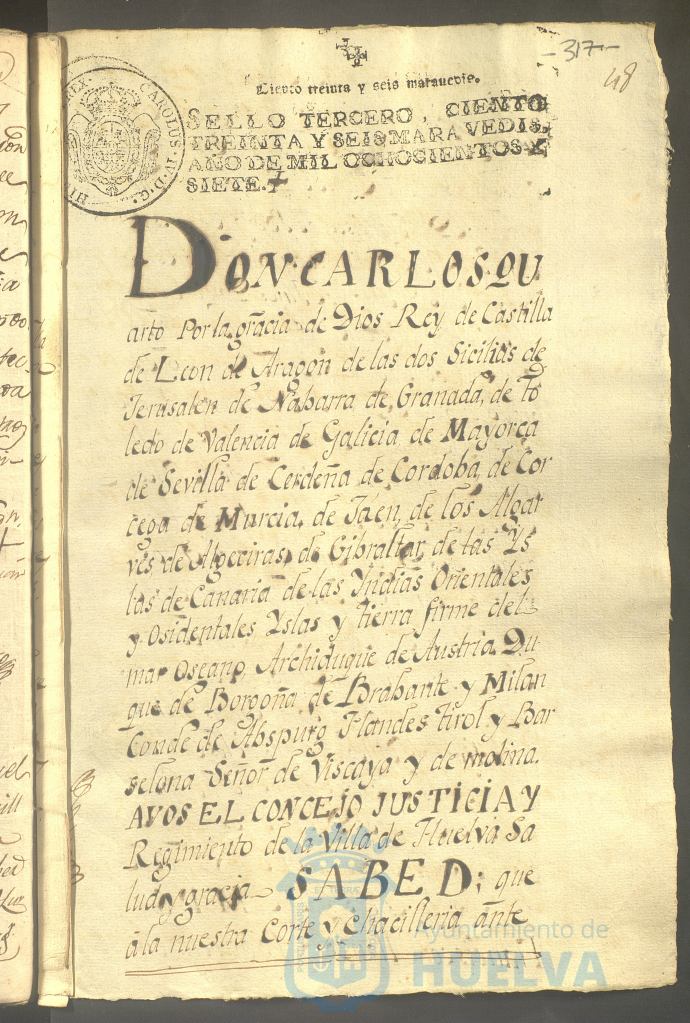 -317-
48
Ciento treinta y seis marauedis.
SELLO TERCERO, CIENTO
TREINTA Y SEIS MARAVEDIS,
AÑO DE MIL OCHOCIENTOS Y
SIETE.
CAROLUS IV D.G.
DON CARLOS QU
arto Por la gracia de Dios Rey de Castilla
de Leon de Aragon de las dos Sicilias de
Jerusalen de Nabarra de Granada, de to
ledo de Valencia de Galicia de Mayorca
de Sevilla de Cerdeña de Cordoba, de Cor
cega de Murcia, de Jaen, de los Algar
ves de Algeciras, de Gibraltar, de las Ys
las de Canaria de las Yndias Orientales
y Osidentales Yslas y tierra firme del
mar Oseano, Archiduque de Austria, Du
que de Borgoña de Brabante y Milan
Conde de Abspurg Flandes tirol y Bar
selona Señor de Viscaya y de molina.
AVOS EL CONCEJO JUSTICIA Y
Regimiento de la Villa de Huelva Sa
lud y gracia SABED; que
à la nuestra Corte y Chacilleria ante
Ayuntamiento de
HUELVA